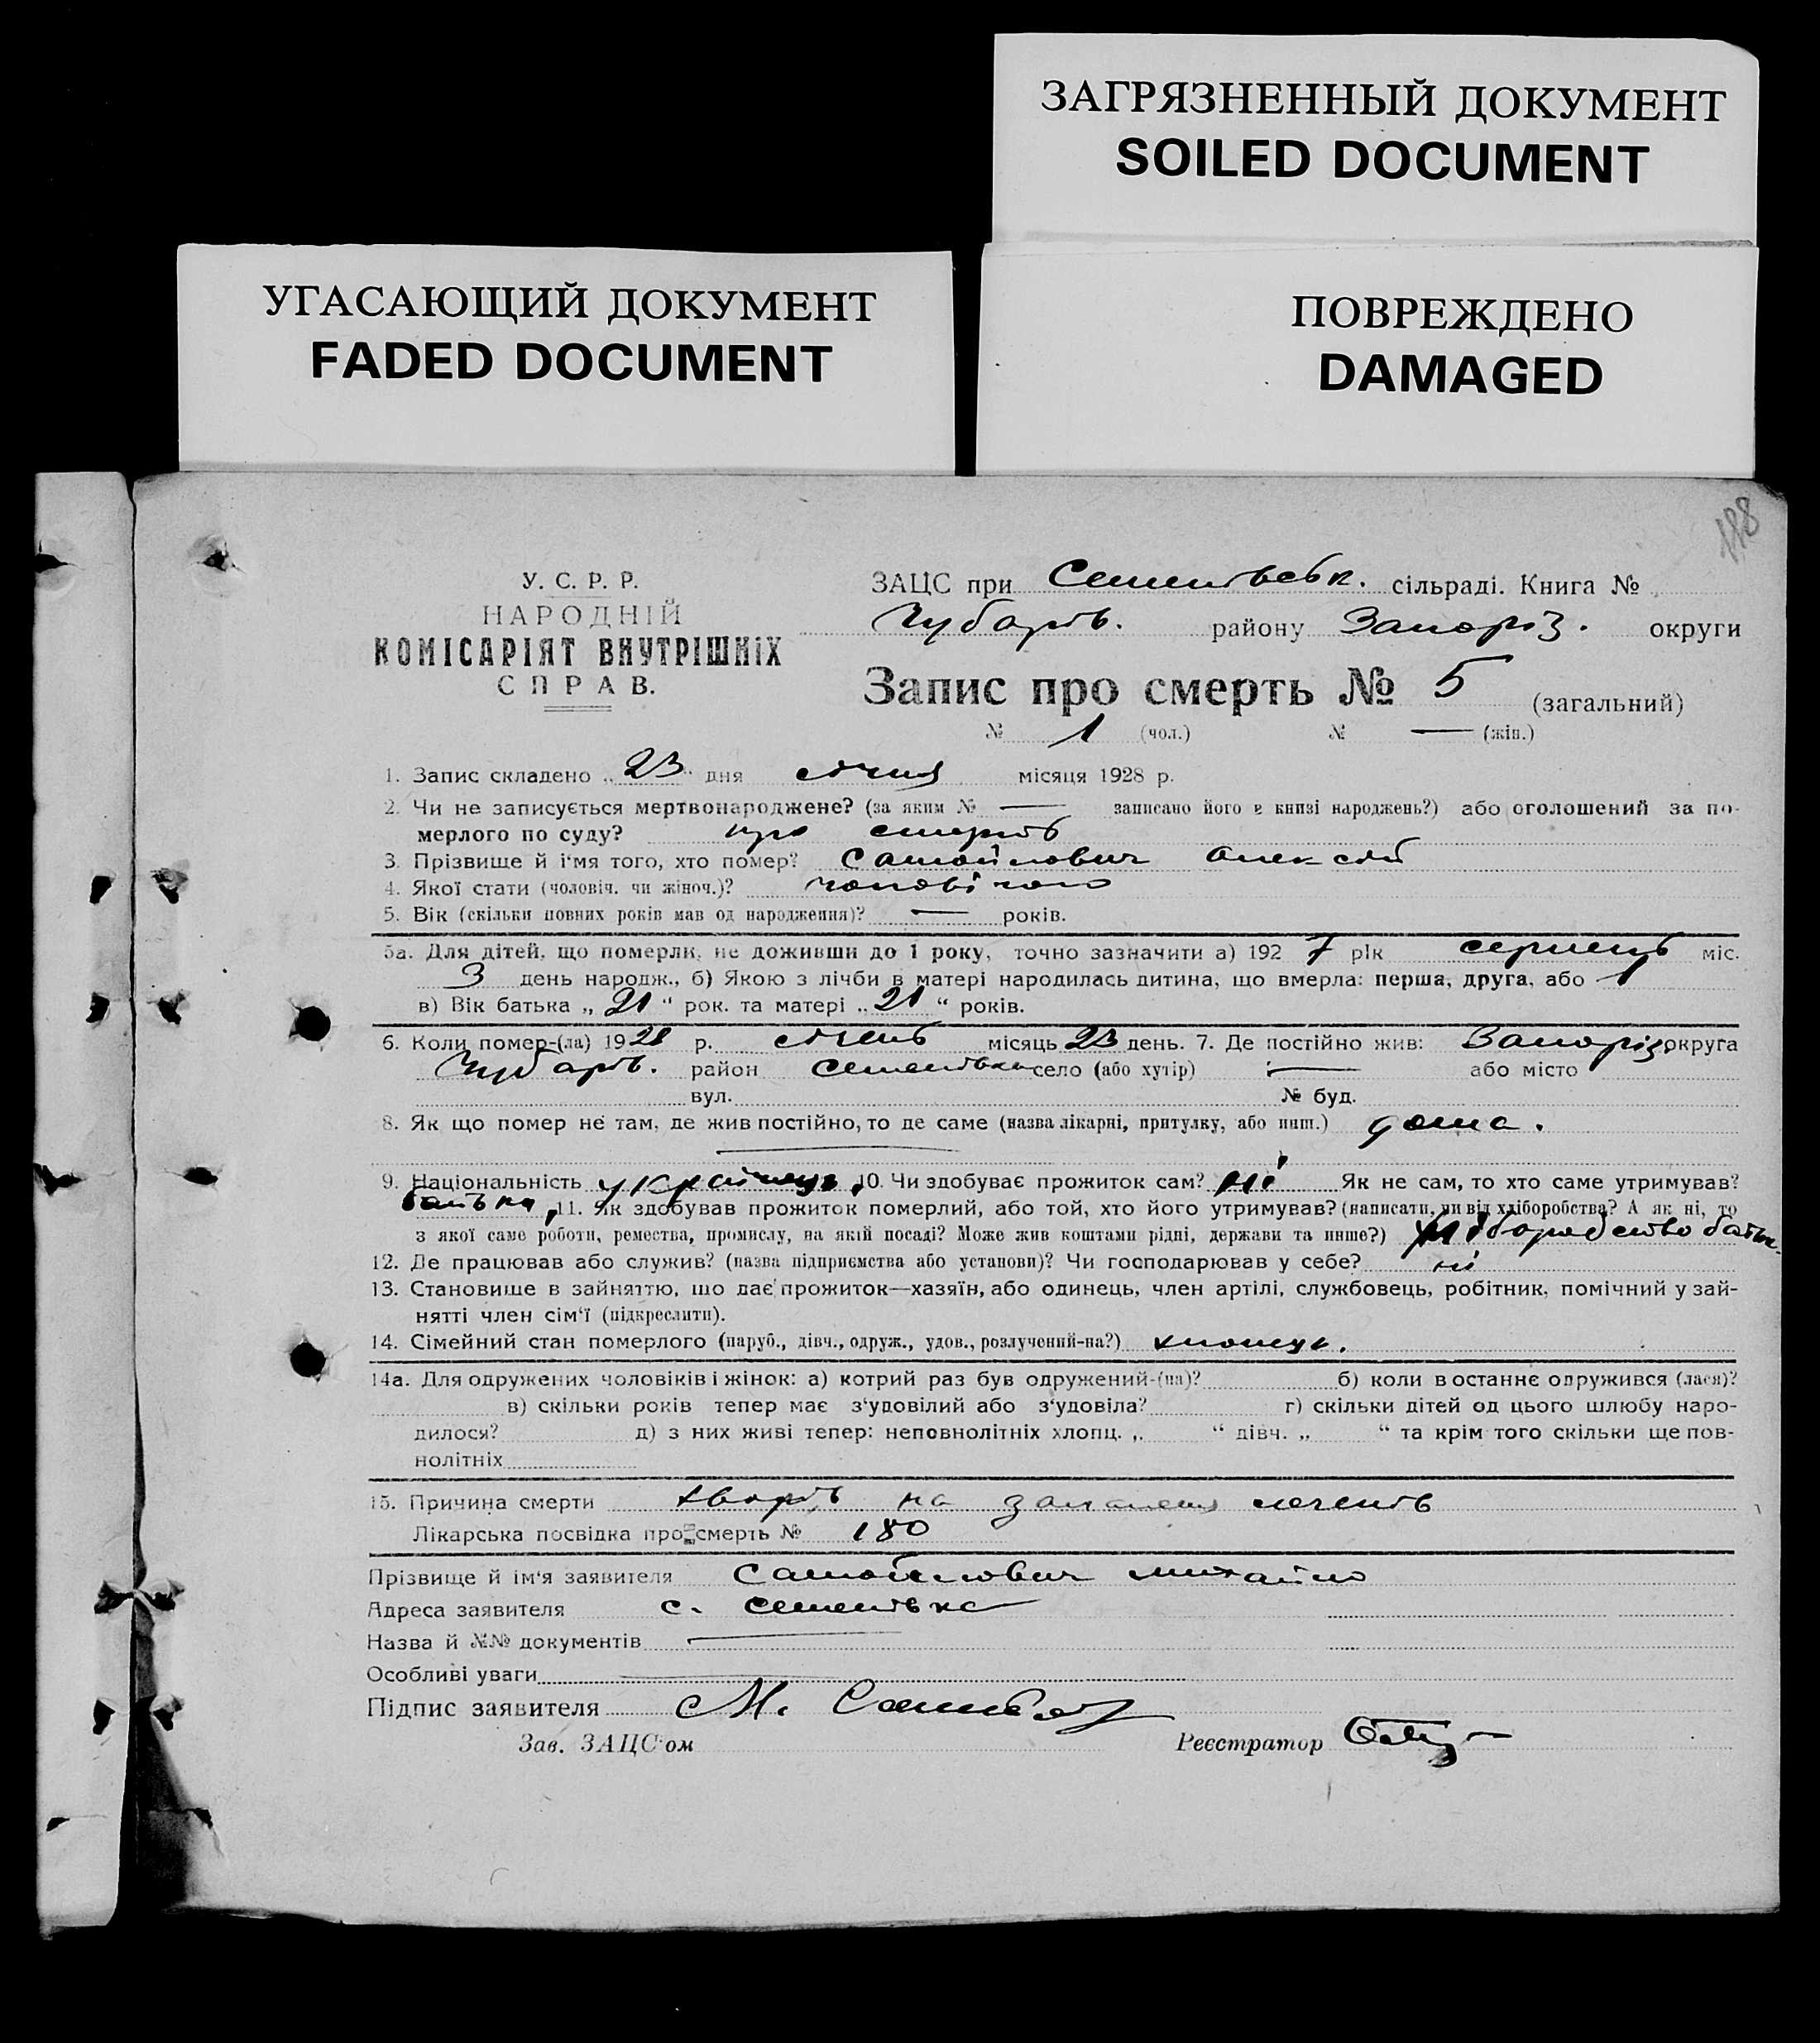 ЗАГРЯЗНЕННЫЙ ДОКУМЕНТ
SOILED DOCUMENT
УГАСАЮЩИЙ ДОКУМЕНТ
FADED DOCUMENT
ПОВРЕЖДЕНО
DAMAGED
118
У. С. Р. Р.
НАРОДНІЙ
КОМІСАРІЯТ ВНУТРІШНІХ
СПРАВ.
ЗАЦС при Семенівськ. сільраді. Книга №
Чубарів. району Запоріз. округи
Запис про смерть № 5 (загальний)
№ 1 (чол.) № — (жін.)
1. Запис складено „23" дня січня місяця 1928 р.
2. Чи не записується мертвонароджене? (за яким № — записано його в книзі народжень?) або оголошений за по-
мерлого по суду? про смерть
3. Прізвище й і'мя того, хто помер? Самойлович Алексій
4. Якої стати (чоловіч. чи жіноч.)? чоловічого
5. Вік (скільки повних років мав од народження)? — років.
5а. Для дітей, що померли, не доживши до 1 року, точно зазначити а) 1927 рік серпень міс.
3 день народж., б) Якою з лічби в матері народилась дитина, що вмерла: перша, друга, або 1
в) Вік батька „21" рок. та матері „21" років.
6. Коли помер-(ла) 1928 р. січень місяць 23 день. 7. Де постійно жив: Запоріз. округа
Чубарів. район Семенівка село (або хутір) — або місто
вул. № буд.
8. Як що помер не там, де жив постійно, то де саме (назва лікарні, притулку, або инш.) дома.
9. Національність українець, 10. Чи здобуває прожиток сам? ні Як не сам, то хто саме утримував?
батько, 11. Як здобував прожиток померлий, або той, хто його утримував? (написати, чи від хліборобства? А як ні, то
з якої саме роботи, ремества, промислу, на якій посаді? Може жив коштами рідні, держави та инше?) хліборобство батьк.
12. Де працював або служив? (назва підприємства або установи)? Чи господарював у себе? ні
13. Становище в зайняттю, що дає прожиток—хазяїн, або одинець, член артілі, службовець, робітник, помічний у зай-
нятті член сім'ї (підкреслити).
14. Сімейний стан померлого (паруб., дівч., одруж., удов., розлучений-на?) хлопець.
14а. Для одружених чоловіків і жінок: а) котрий раз був одружений-(на)? б) коли в останнє одружився (лася)?
в) скільки років тепер має з'удовілий або з'удовіла? г) скільки дітей од цього шлюбу наро-
дилося? д) з них живі тепер: неповнолітніх хлопц. „ " дівч. „ " та крім того скільки ще пов-
нолітніх
15. Причина смерти хворів на запаленя легенів
Лікарська посвідка про смерть № 180
Прізвище й ім'я заявителя Самойлович Михайло
Адреса заявителя с. Семенівка
Назва й №№ документів —
Особливі уваги —
Підпис заявителя М.
Зав. ЗАЦС'ом Реєстратор